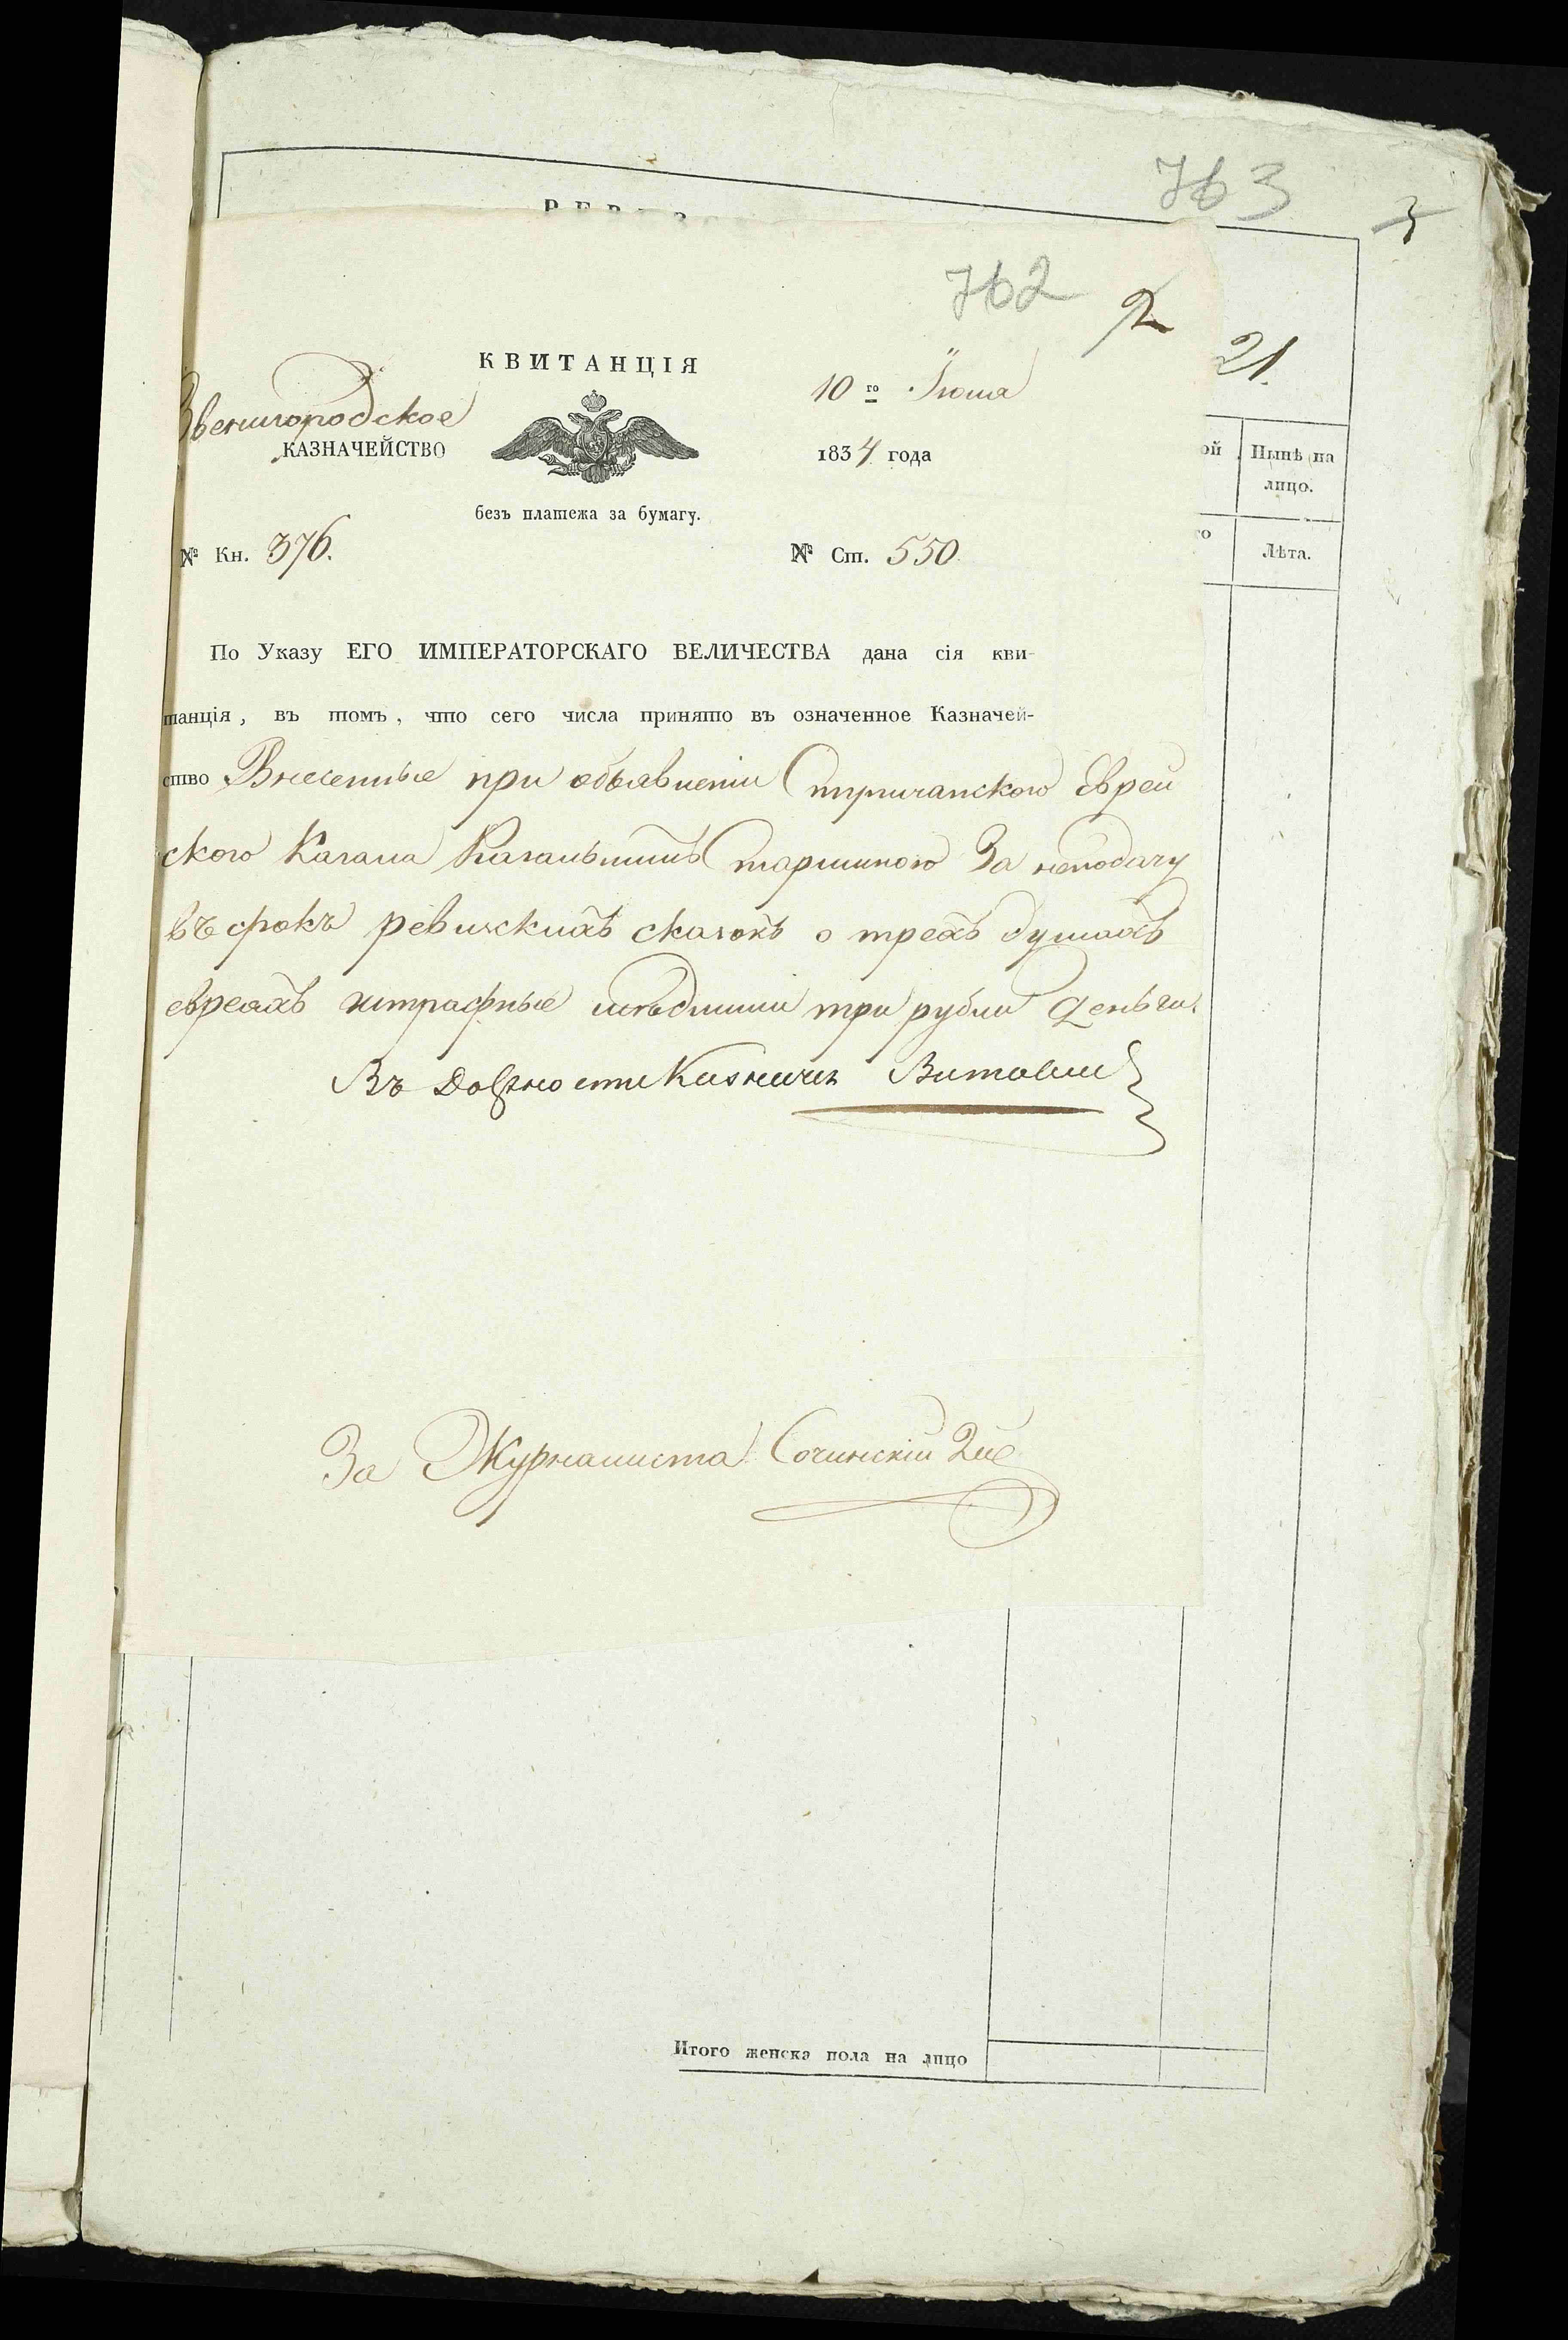 763
3
762
2
21.
КВИТАНЦІЯ
Звенигородское
КАЗНАЧЕЙСТВО
10 го Іюня
1834 года
безъ платежа за бумагу.
№ Кн. 376.
№ Ст. 550
По Указу ЕГО ИМПЕРАТОРСКАГО ВЕЛИЧЕСТВА дана сія кви-
танція, въ томъ, что сего числа принято въ означенное Казначей-
ство Внесенные при объявленіи Еврей
ского Кагала Кагальнымъ Старшиною За неподачу
въ срокъ ревизскихъ сказокъ о трехъ душахъ
евреахъ штрафные мѣдными три рубли деньги.
Въ Должности Казначея
За Журналиста Сочинскій 2й
ой
Нынѣ на
лицо.
го
Лѣта.
Итого женска пола на лицо